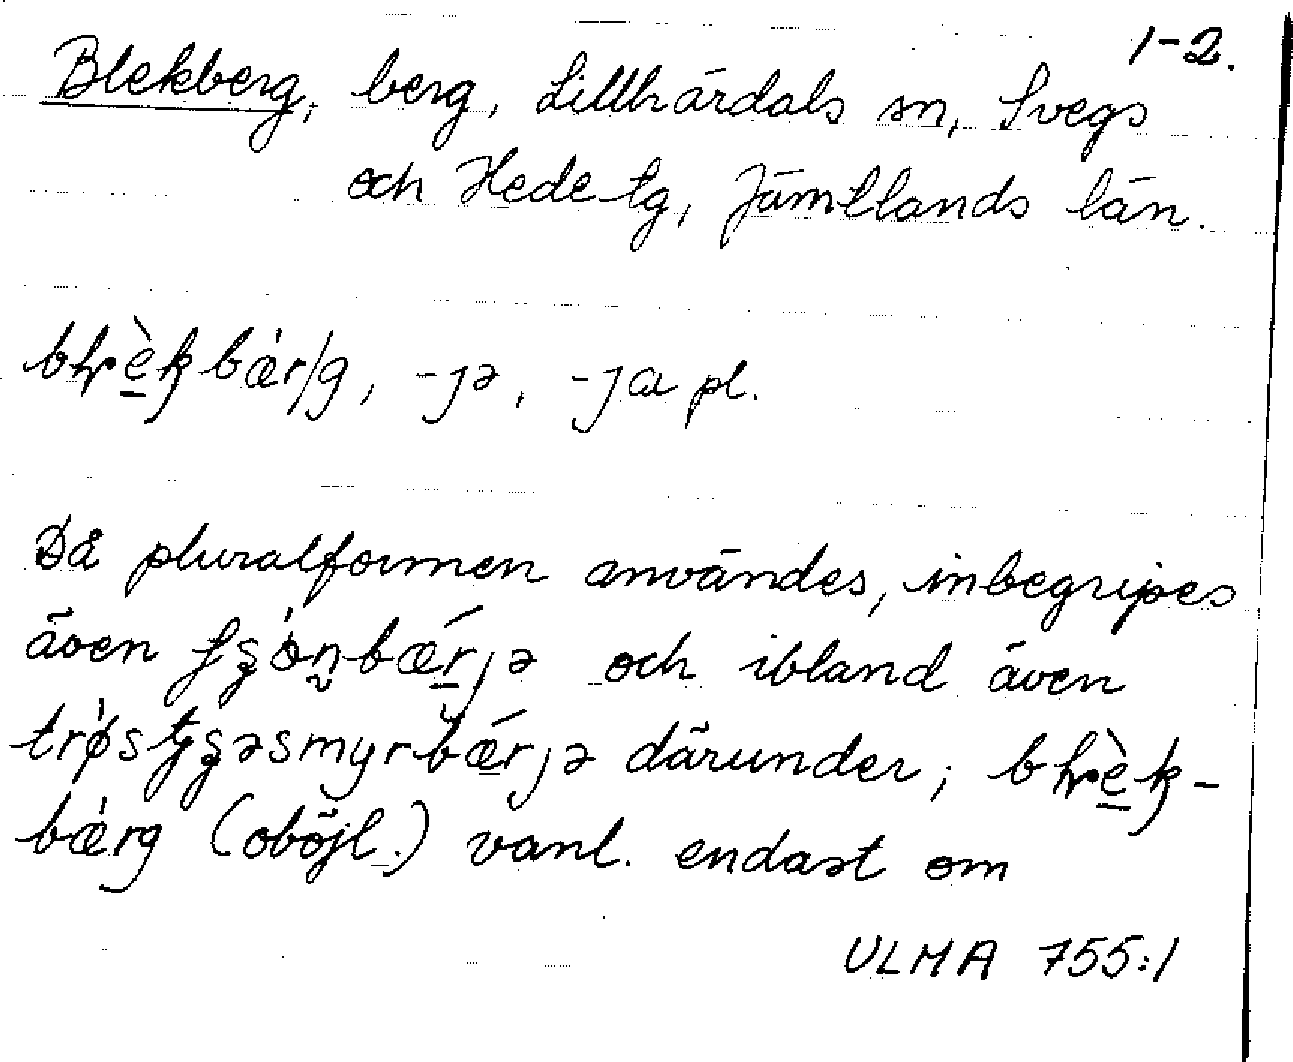 1-2.
Blekberg, berg, Lillhärdals sn, Svegs
och Hede tg, Jämtlands län.
bḷèkbær/g, -jə, -ja pl.
Då pluralformen användes, inbegripes
även och ibland även
därunder; bḷèk-
bærg (oböjl.) vanl. endast om
ULMA 755:1